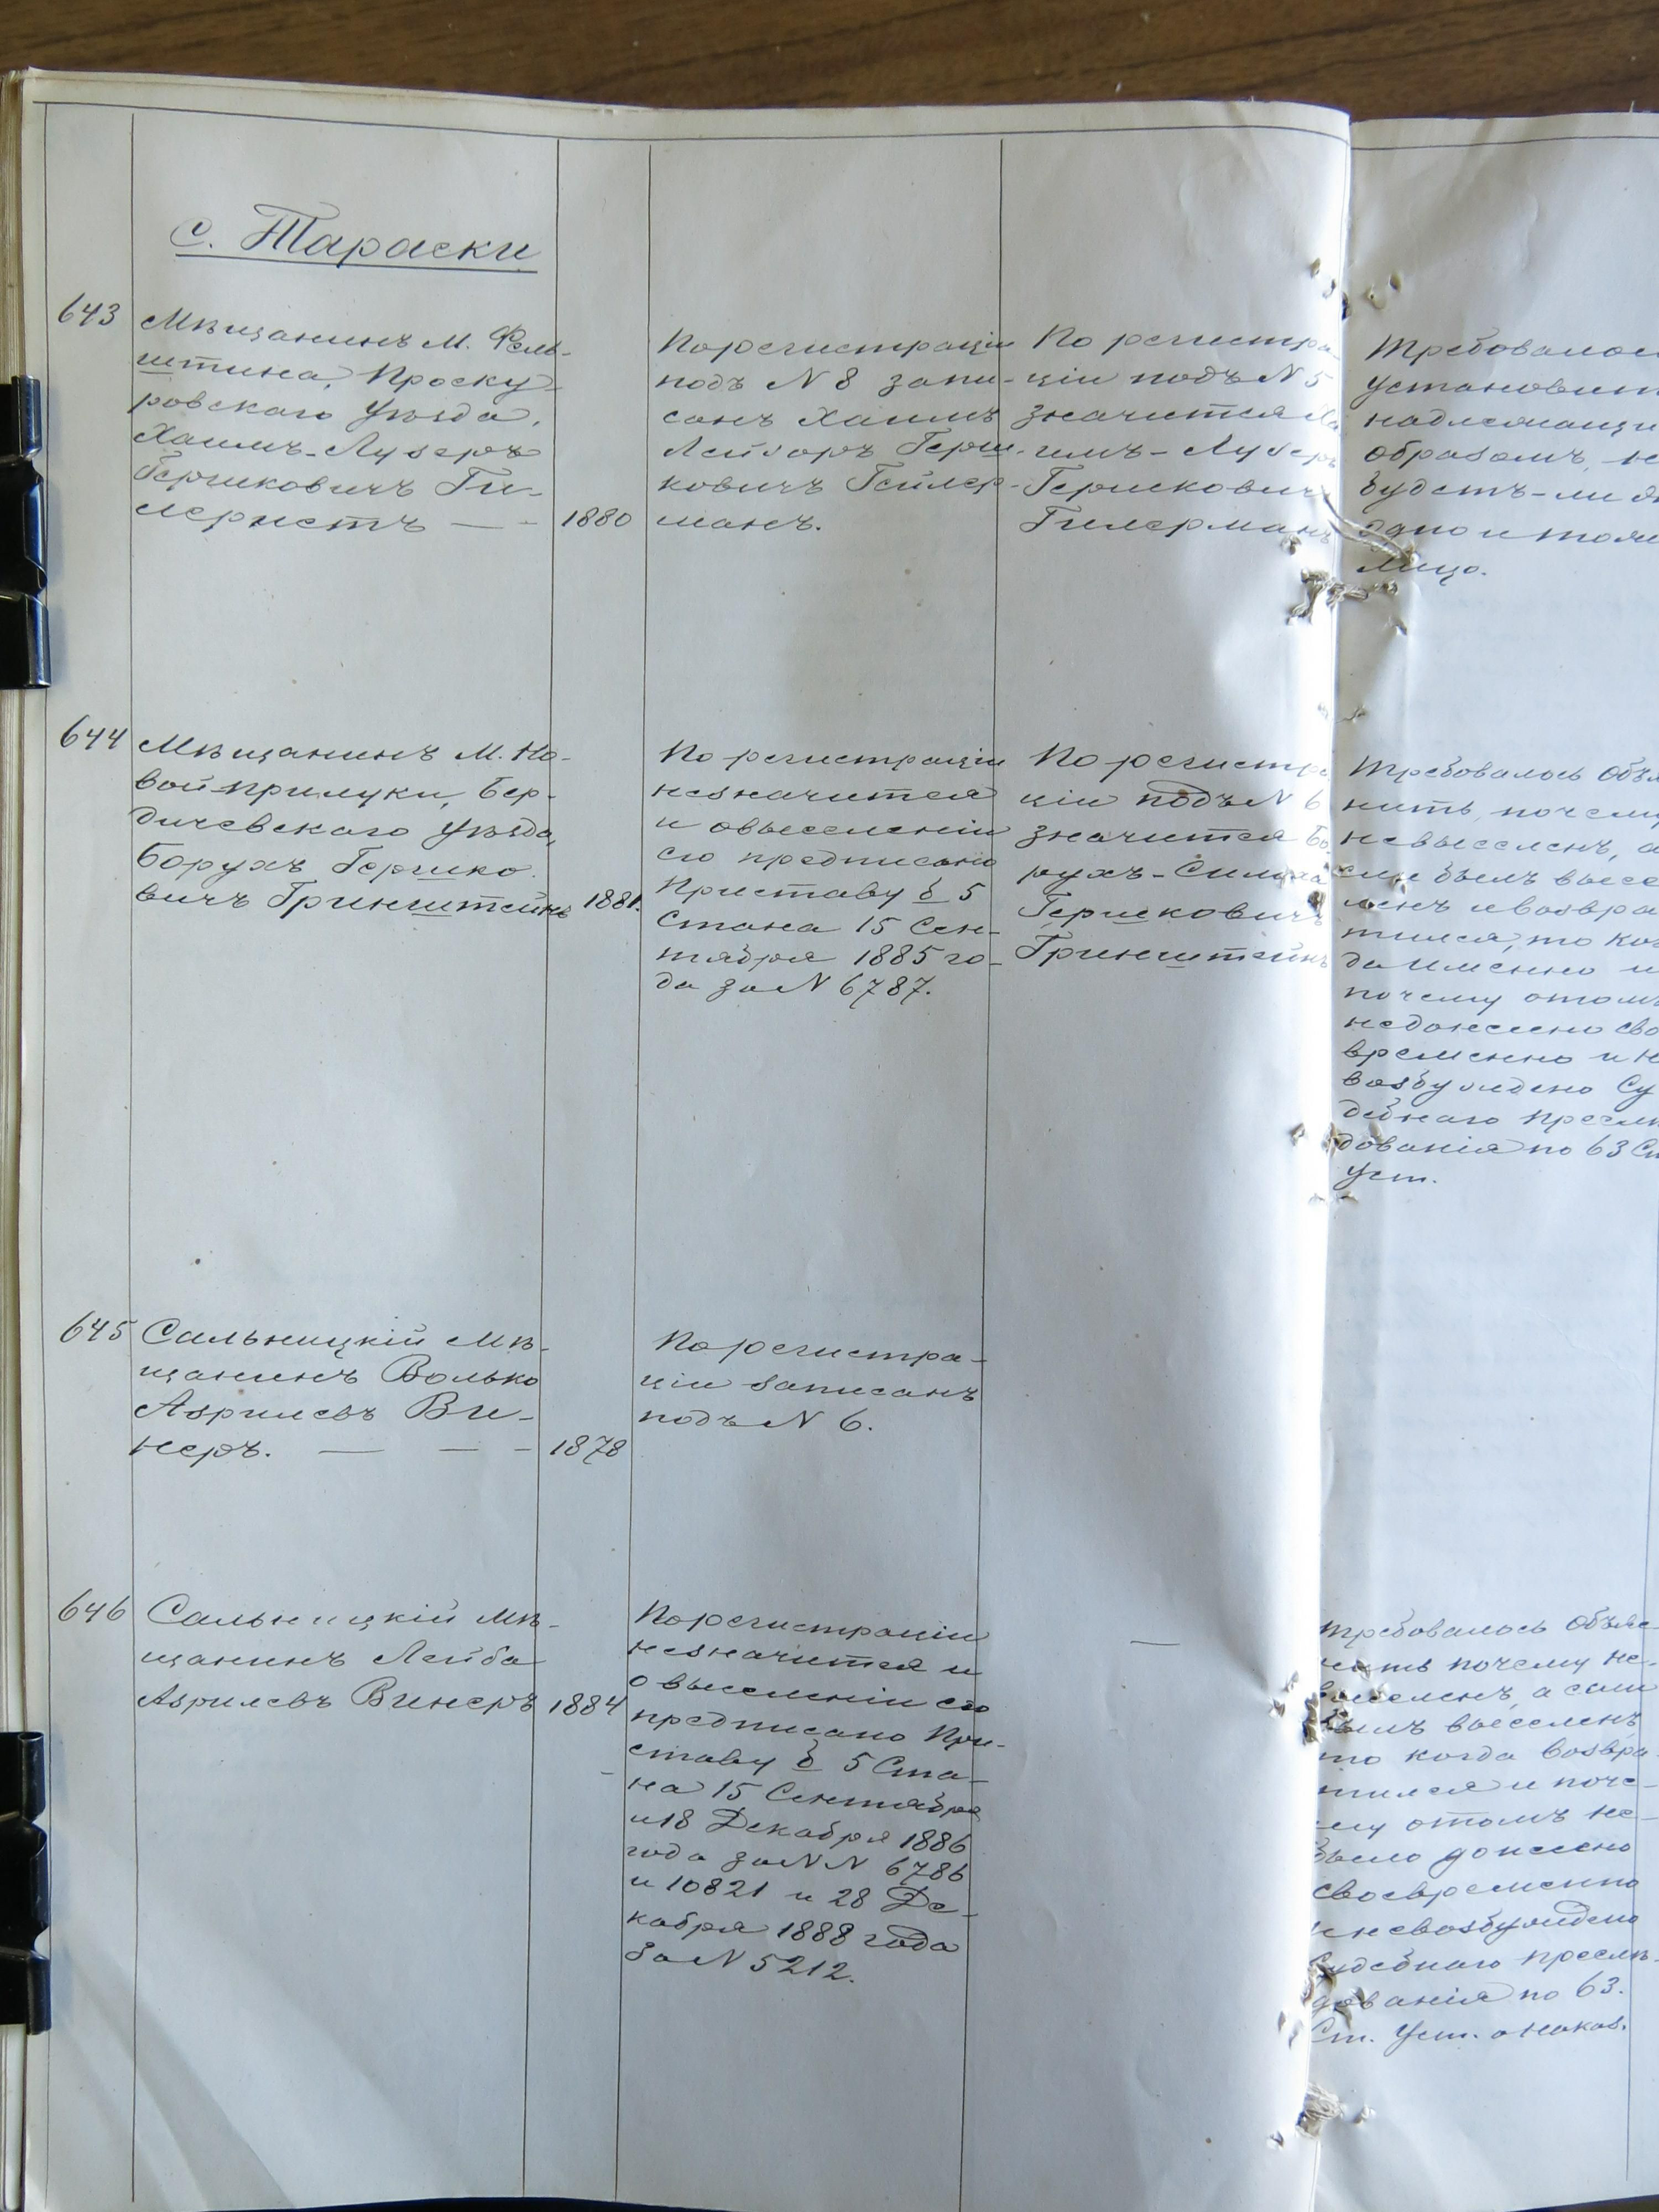 с. Тараски
643
Мѣщанинъ М. Фель-
штина, Проску-
ровскаго Уѣзда,
Хаимъ-Лузеръ
Гершковичъ Ги-
1880
По регистраціи
подъ N 8 запи-
санъ Хаимъ
Лейзоръ Герш-
ковичъ Гейлер-
манъ.
По регистра-
ціи подъ N 5
значится Ха
имъ-Лузеръ
Гершковичъ
Гилерманъ
Требовалос
установит
надлежащи
образомъ, н
будетъ-ли э
одно и тоже
лицо.
644
Мѣщанинъ М. Но-
вой-прилуки, Бер-
дичевскаго Уѣзда,
Борухъ Гершко-
вичъ Гринштейнъ
1881.
По регистраціи
незначится
и овыселеніи
его предписано
Приставу 5
Стана 15 Сен-
тября 1885 го-
да за N 6787.
По регистра
ціи подъ N 6
значится Бо
рухъ-Симха
Гершковичъ
Гринштейнъ
Требовалось Объя
нить, почему
невыселенъ, а
если былъ высе
ленъ ивозвра
тился, то ког
да именно и
почему отомъ
недонесено сво
временно и н
возбуждено Су
дебнаго преслѣ
дованія по 63 Ст
Уст.
645
Сальницкій Мѣ-
щанинъ Волько
Азрилевъ Ви-
неръ. — — -
1878
По регистра-
ціи записанъ
подъ N 6.
646
Сальницкій Мѣ-
щанинъ Лейба
Азрилевъ Винеръ
1884
По регистраціи
незначится и
о выселеніи его
предписано При-
ставу 5 Ста-
на 15 Сентября
и 18 Декабря 1886
года за N N 6786
и 10821 и 28 Де-
кабря 1888 года
за N 5212.
—
Требовалось Объяс-
нить почему не-
выселенъ, а если
былъ выселенъ,
то когда возвра-
тился и поче-
му отомъ не-
было донесено
своевременно
и невозбуждено
Судебнаго преслѣ-
дованія по 63.
Ст. Уст. о наказ.